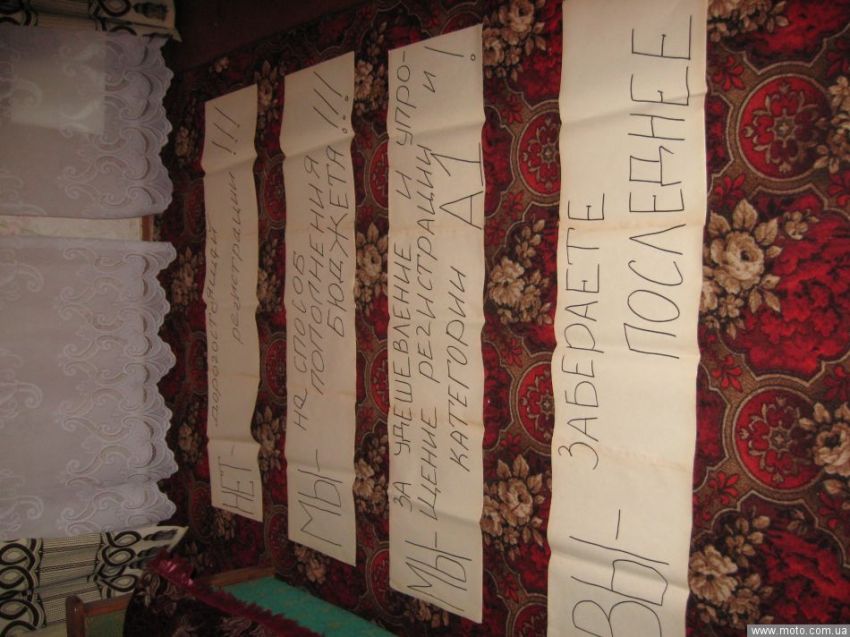 НЕТ- дорогостоящей
регистрации !!!
МЫ- не СПОСОБ
ПОПОЛНЕНИЯ
БЮДЖЕТА!!!
МЫ- ЗА УДЕШЕВЛЕНИЕ И УПРО-
ЩЕНИЕ РЕГИСТРАЦИИ И
КАТЕГОРИИ А1 !
ВЫ- ЗАБЕРАЕТЕ
ПОСЛЕДНЕЕ
www.moto.com.ua